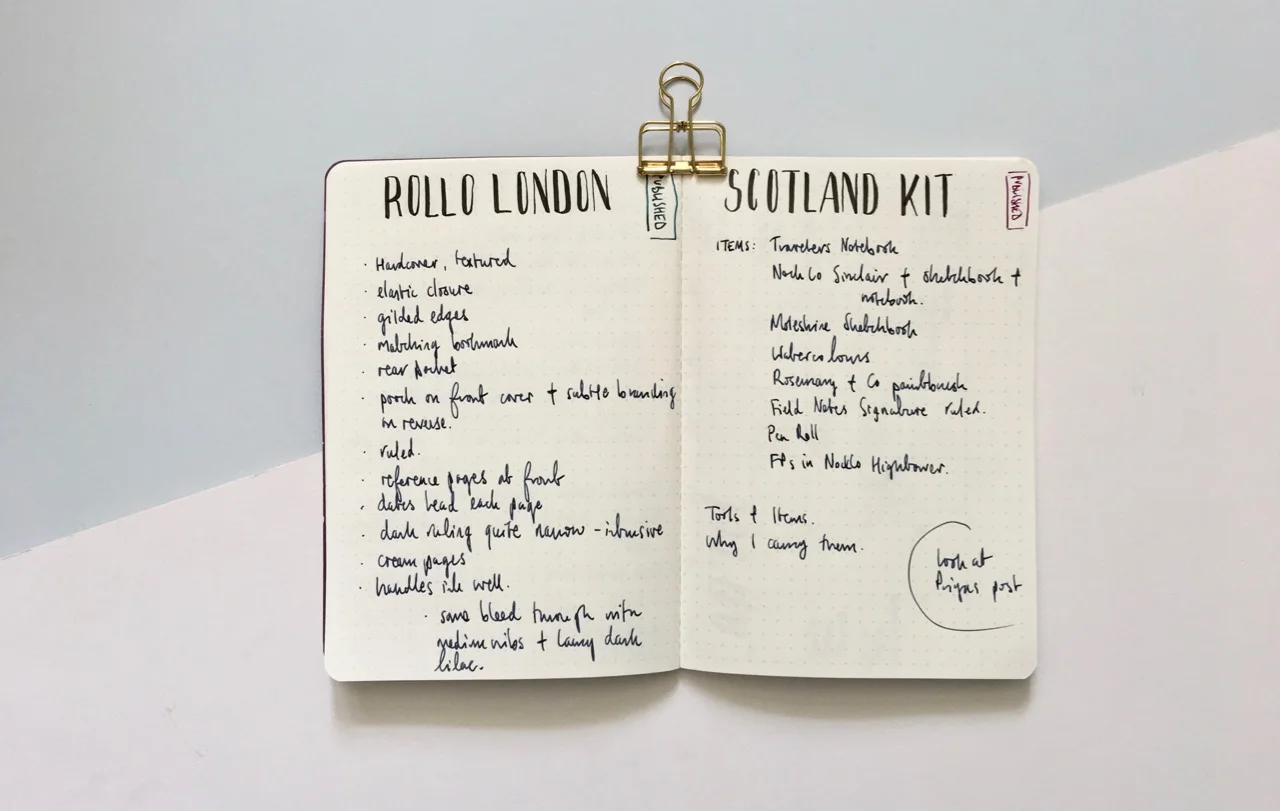 ROLLO LONDON
PUBLISHED
· Hardcover, textured
· elastic closure
· gilded edges
· matching bookmark
· rear pocket
· pooch on front cover + subtle branding
on reverse.
· ruled.
· reference pages at front
· dates head each page
· dark ruling quite narrow - intrusive
· cream pages
· handles ink well.
· some bleed through with
medium nibs + Lamy dark
lilac.
SCOTLAND KIT
PUBLISHED
ITEMS: Travelers Notebook
Nock Co Sinclair + sketchbook +
notebook.
Moleskine Sketchbook
Watercolours
Rosemary + Co paintbrush
Field Notes Signature ruled.
Pen Roll
FPs in NockCo Hightower.
Tools + Items.
Why I carry them.
Look at
post